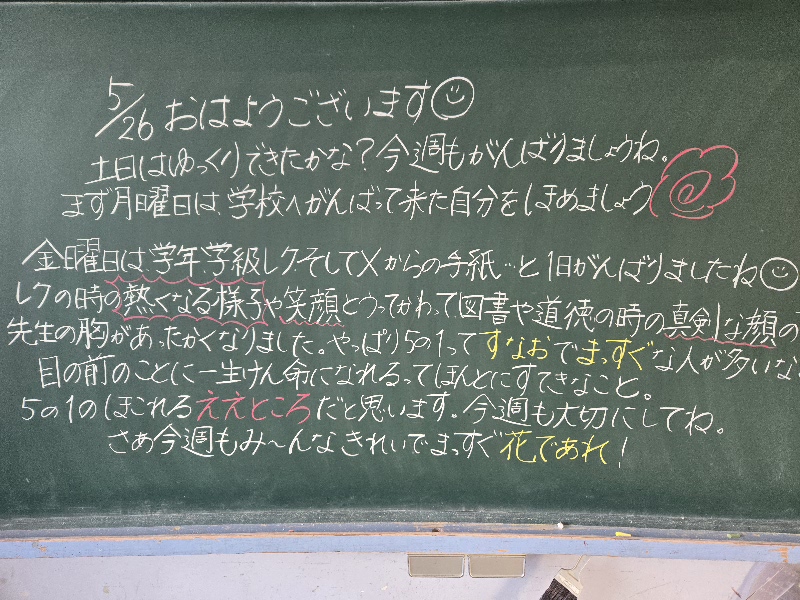 5/26 おはようございます
土日はゆっくりできたかな？今週もがんばりましょうね。
まず月曜日は、学校へがんばって来た自分をほめましょう
金曜日は、学年、学級レク、そしてXからの手紙…と1日がんばりましたね
レクの時の熱くなる様子や笑顔とうってかわって図書や道徳の時の真剣な顔の
先生の胸があったかくなりました。やっぱり5の1ってすなおでまっすぐな人が多いな
目の前のことに一生けん命になれるってほんとにすてきなこと。
5の1のほこれるええところだと思います。今週も大切にしてね。
さあ今週もみ〜んなきれいでまっすぐ花であれ！